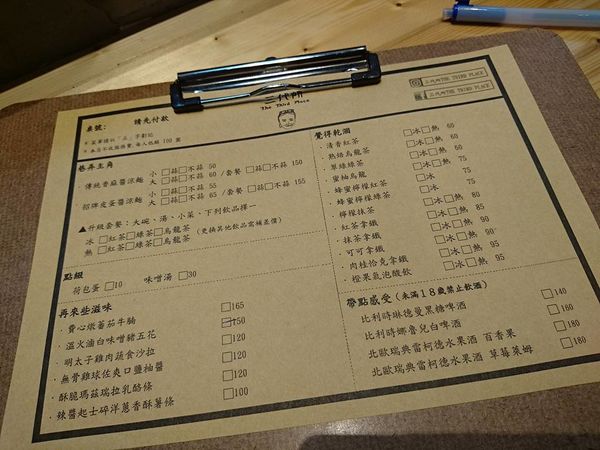 三代時
The Third Place
三代時THE THIRD PLACE
三代時THE THIRD PLACE
桌號: 請先付款
*菜單請以「正」字劃記
*本店不收服務費,每人低銷 100 圓
巷弄主角
·傳統香麻醬涼麵 小 □蒜□不蒜 50
大 □蒜□不蒜 60 /套餐 □蒜□不蒜 150
·招牌皮蛋醬涼麵 小 □蒜□不蒜 55
大 □蒜□不蒜 65 /套餐 □蒜□不蒜 155
▲升級套餐:大碗、湯、小菜、下列飲品擇一
冰 □紅茶□綠茶□烏龍茶
熱 □紅茶□綠茶□烏龍茶 (更換其他飲品需補差價)
點綴
荷包蛋 □10 味噌湯 □30
再來些滋味
·費心燉蕃茄牛腩 □165
·溫火滷白味噌豬五花 □150
·明太子雞肉蔬食沙拉 □120
·無骨雞球佐爽口鹽柚醬 □120
·酥脆瑪茲瑞拉乳酪條 □120
·辣醬起士碎洋蔥香酥薯條 □100
覺得乾涸
·清香紅茶 □冰□熱 60
·熟焙烏龍茶 □冰□熱 60
·翠綠綠茶 □冰□熱 60
·蜜柚烏龍 □冰 75
·蜂蜜檸檬紅茶 □冰□熱 75
·蜂蜜檸檬綠茶 □冰 75
·檸檬抹茶 □冰□熱 80
·紅茶拿鐵 □冰□熱 85
·抹茶拿鐵 □冰□熱 90
·可可拿鐵 □冰□熱 90
·肉桂恰克拿鐵 □冰□熱 95
·橙果氣泡酸飲 □冰 95
帶點感受(未滿18歲禁止飲酒)
比利時琳德曼黑糖啤酒 □140
比利時娜魯兒白啤酒 □160
北歐瑞典雷柯德水果酒 百香果 □180
北歐瑞典雷柯德水果酒 草莓萊姆 □180